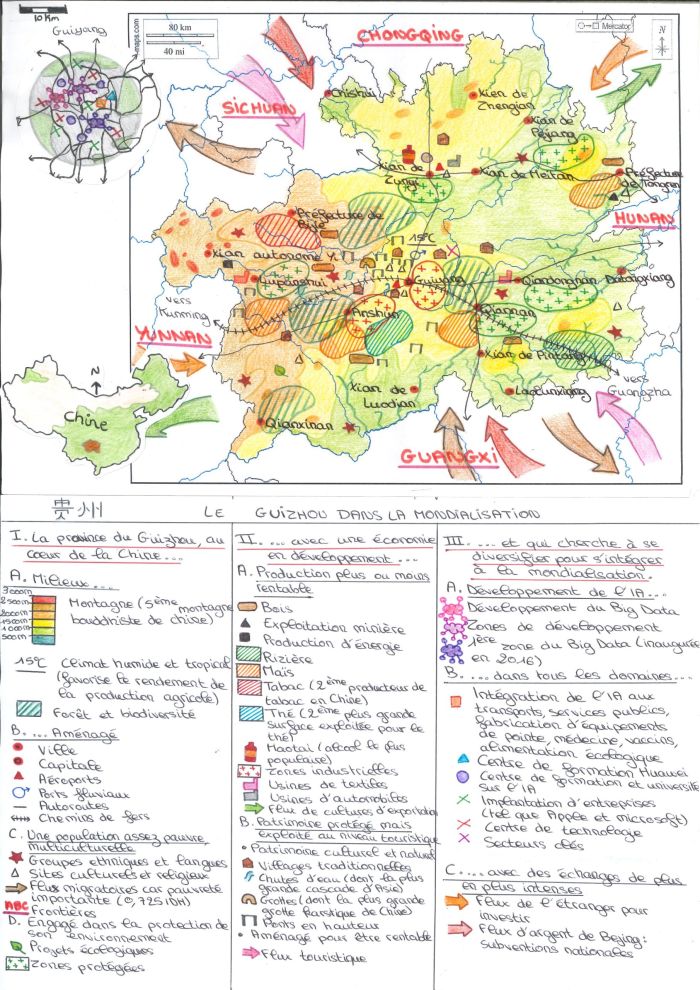 10 Km
Guiyang
80 km
40 mi
-maps.com
Mercator
N
CHONGQING
SICHUAN
Chishui
Xian de
Zhengan
Xian de
Fejiang
Xian de
Zunyi
Xian de Meitan
Préfecture
de Tongren
HUNAN
Préfecture de
Bijie
Xian autonome Y.
15°C
Lupanshui
Guiyang
Qiandongnan
Datangxiang
vers
Kunming
Anshun
Qiannan
YUNNAN
Xian de Pintang
vers
Guangzha
N
Chine
Xian de
Luodian
Laocunxiang
Qianxinan
GUANGXI
贵州 LE GUIZHOU DANS LA MONDIALISATION
I. La province du Guizhou, au
cœur de la Chine....
A. Milieux....
3000m
2500m
2000m
1500m
1000m
500m
Montagne (5ème montagne
bouddhiste de chine)
15°C Climat humide et tropical
(favorise le rendement de
la production agricole)
Forêt et biodiversité
B. .... Aménagé
Ville
Capitale
Aéroports
Ports fluviaux
Autoroutes
Chemins de fers
C. Une population assez pauvre,
multiculturelle
Groupes ethniques et langues
Sites culturels et religieux
Flux migratoires car pauvreté
importante (0,725 IDH)
ABC Frontières
D. Engagé dans la protection de
son environnement
Projets écologiques
Zones protégées
II. ....avec une économie
en développement....
A. Production plus ou moins
rentable
Bois
Exploitation minière
Production d'énergie
Rizière
Maïs
Tabac (2ème producteur de
tabac en Chine)
Thé (2ème plus grande
surface exploitée pour le
thé)
Maotai (alcool le plus
populaire)
Zones industrielles
Usines de textiles
Usines d'automobiles
Flux de cultures d'exportation
B. Patrimoine protégé mais
exploité au niveau touristique
• Patrimoine culturel et naturel
Villages traditionnelles
Chutes d'eau (dont la plus
grande cascade d'Asie)
Grottes (dont la plus grande
grotte karstique de Chine)
Ponts en hauteur
• Aménagé pour être rentable
Flux touristique
III. ....et qui cherche à se
diversifier pour s'intégrer
à la mondialisation.
A. Développement de l'IA....
Développement du Big Data
Zones de développement
1ère zone du Big Data (inaugurée
en 2016)
B. ....dans tous les domaines....
Intégration de l'IA aux
transports, services publics,
fabrication d'équipements
de pointe, médecine, vaccins,
alimentation écologique
Centre de formation Huawei
Centre de formation et université
sur l'IA
Implantation d'entreprises
(tel que Apple et microsoft)
Centre de technologie
Secteurs clés
C. ....avec des échanges de plus
en plus intenses
Flux de l'étranger pour
investir
Flux d'argent de Bejing:
subventions nationales